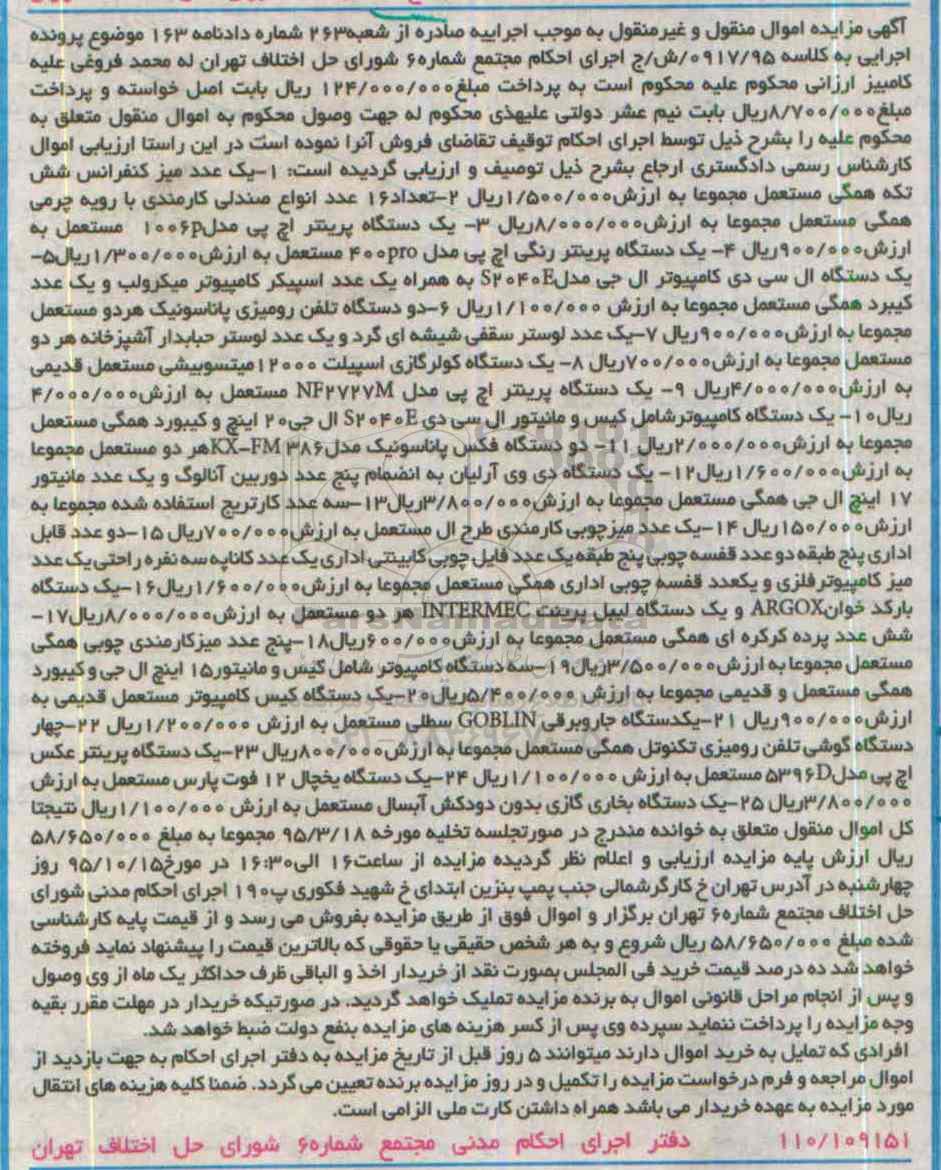 آگهی مزایده اموال منقول و غیرمنقول به موجب اجراییه صادره از شعبه۲۶۳ شماره دادنامه ۱۶۳ موضوع پرونده
اجرایی به کلاسه ۰۹۱۷/۹۵/ش/ج اجرای احکام مجتمع شماره۶ شورای حل اختلاف تهران له محمد فروغی علیه
کامبیز ارزانی محکوم علیه محکوم است به پرداخت مبلغ۱۲۴/۰۰۰/۰۰۰ ریال بابت اصل خواسته و پرداخت
مبلغ۸/۷۰۰/۰۰۰ریال بابت نیم عشر دولتی علیهذی محکوم له جهت وصول محکوم به اموال منقول متعلق به
محکوم علیه را بشرح ذیل توسط اجرای احکام توقیف تقاضای فروش آنرا نموده است در این راستا ارزیابی اموال
کارشناس رسمی دادگستری ارجاع بشرح ذیل توصیف و ارزیابی گردیده است: ۱-یک عدد میز کنفرانس شش
تکه همگی مستعمل مجموعا به ارزش۱/۵۰۰/۰۰۰ریال ۲-تعداد۱۶ عدد انواع صندلی کارمندی با رویه چرمی
همگی مستعمل مجموعا به ارزش۸/۰۰۰/۰۰۰ریال ۳- یک دستگاه پرینتر اچ پی مدل۱۰۰۶p مستعمل به
ارزش۹۰۰/۰۰۰ریال ۴- یک دستگاه پرینتر رنگی اچ پی مدل ۴۰۰pro مستعمل به ارزش۱/۳۰۰/۰۰۰ریال۵-
یک دستگاه ال سی دی کامپیوتر ال جی مدلS۲۰۴۰E به همراه یک عدد اسپیکر کامپیوتر میکرولب و یک عدد
کیبرد همگی مستعمل مجموعا به ارزش ۱/۱۰۰/۰۰۰ریال ۶-دو دستگاه تلفن رومیزی پاناسونیک هردو مستعمل
مجموعا به ارزش۹۰۰/۰۰۰ریال ۷-یک عدد لوستر سقفی شیشه ای گرد و یک عدد لوستر حبابدار آشپزخانه هر دو
مستعمل مجموعا به ارزش۷۰۰/۰۰۰ریال ۸- یک دستگاه کولرگازی اسپیلت ۱۲۰۰۰میتسوبیشی مستعمل قدیمی
به ارزش۴/۰۰۰/۰۰۰ریال ۹- یک دستگاه پرینتر اچ پی مدل NF۲۷۲۷M مستعمل به ارزش۴/۰۰۰/۰۰۰
ریال۱۰- یک دستگاه کامپیوترشامل کیس و مانیتور ال سی دی S۲۰۴۰E ال جی۲۰ اینچ و کیبورد همگی مستعمل
مجموعا به ارزش۲/۰۰۰/۰۰۰ریال ۱۱- دو دستگاه فکس پاناسونیک مدل۳۸۶ KX-FMهر دو مستعمل مجموعا
به ارزش۱/۶۰۰/۰۰۰ریال۱۲- یک دستگاه دی وی آرلیان به انضمام پنج عدد دوربین آنالوگ و یک عدد مانیتور
۱۷ اینچ ال جی همگی مستعمل مجموعا به ارزش۳/۸۰۰/۰۰۰ریال۱۳-سه عدد کارتریج استفاده شده مجموعا به
ارزش۱۵۰/۰۰۰ریال ۱۴-یک عدد میزچوبی کارمندی طرح ال مستعمل به ارزش۷۰۰/۰۰۰ریال ۱۵-دو عدد قابل
اداری پنج طبقه دو عدد قفسه چوبی پنج طبقه یک عدد فایل چوبی کابینتی اداری یک عدد کاناپه سه نفره راحتی یک عدد
میز کامپیوتر فلزی و یکعدد قفسه چوبی اداری همگی مستعمل مجموعا به ارزش۱/۶۰۰/۰۰۰ریال۱۶-یک دستگاه
بارکد خوانARGOX و یک دستگاه لیبل پرینت INTERMEC هر دو مستعمل به ارزش۸/۰۰۰/۰۰۰ریال۱۷-
شش عدد پرده کرکره ای همگی مستعمل مجموعا به ارزش۶۰۰/۰۰۰ریال۱۸-پنج عدد میزکارمندی چوبی همگی
مستعمل مجموعا به ارزش۳/۵۰۰/۰۰۰ریال۱۹-سه دستگاه کامپیوتر شامل کیس و مانیتور۱۵ اینچ ال جی و کیبورد
همگی مستعمل و قدیمی مجموعا به ارزش ۵/۴۰۰/۰۰۰ریال۲۰-یک دستگاه کیس کامپیوتر مستعمل قدیمی به
ارزش۹۰۰/۰۰۰ریال ۲۱-یکدستگاه جاروبرقی GOBLIN سطلی مستعمل به ارزش ۱/۲۰۰/۰۰۰ریال ۲۲-چهار
دستگاه گوشی تلفن رومیزی تکنوتل همگی مستعمل مجموعا به ارزش۸۰۰/۰۰۰ریال ۲۳-یک دستگاه پرینتر عکس
اچ پی مدل۵۳۹۶D مستعمل به ارزش ۱/۱۰۰/۰۰۰ریال ۲۴-یک دستگاه یخچال ۱۲ فوت پارس مستعمل به ارزش
۳/۸۰۰/۰۰۰ریال ۲۵-یک دستگاه بخاری گازی بدون دودکش آبسال مستعمل به ارزش ۱/۱۰۰/۰۰۰ریال نتیجتا
کل اموال منقول متعلق به خوانده مندرج در صورتجلسه تخلیه مورخه ۹۵/۳/۱۸ مجموعا به مبلغ ۵۸/۶۵۰/۰۰۰
ریال ارزش پایه مزایده ارزیابی و اعلام نظر گردیده مزایده از ساعت۱۶ الی۱۶:۳۰ در مورخ۹۵/۱۰/۱۵ روز
چهارشنبه در آدرس تهران خ کارگرشمالی جنب پمپ بنزین ابتدای خ شهید فکوری پ۱۹۰ اجرای احکام مدنی شورای
حل اختلاف مجتمع شماره۶ تهران برگزار و اموال فوق از طریق مزایده بفروش می رسد و از قیمت پایه کارشناسی
شده مبلغ ۵۸/۶۵۰/۰۰۰ ریال شروع و به هر شخص حقیقی یا حقوقی که بالاترین قیمت را پیشنهاد نماید فروخته
خواهد شد ده درصد قیمت خرید فی المجلس بصورت نقد از خریدار اخذ و الباقی ظرف حداکثر یک ماه از وی وصول
و پس از انجام مراحل قانونی اموال به برنده مزایده تملیک خواهد گردید. در صورتیکه خریدار در مهلت مقرر بقیه
وجه مزایده را پرداخت ننماید سپرده وی پس از کسر هزینه های مزایده بنفع دولت ضبط خواهد شد.
افرادی که تمایل به خرید اموال دارند میتوانند ۵ روز قبل از تاریخ مزایده به دفتر اجرای احکام به جهت بازدید از
اموال مراجعه و فرم درخواست مزایده را تکمیل و در روز مزایده برنده تعیین می گردد. ضمنا کلیه هزینه های انتقال
مورد مزایده به عهده خریدار می باشد همراه داشتن کارت ملی الزامی است.
۱۱۰/۱۰۹۱۵۱ دفتر اجرای احکام مدنی مجتمع شماره۶ شورای حل اختلاف تهران